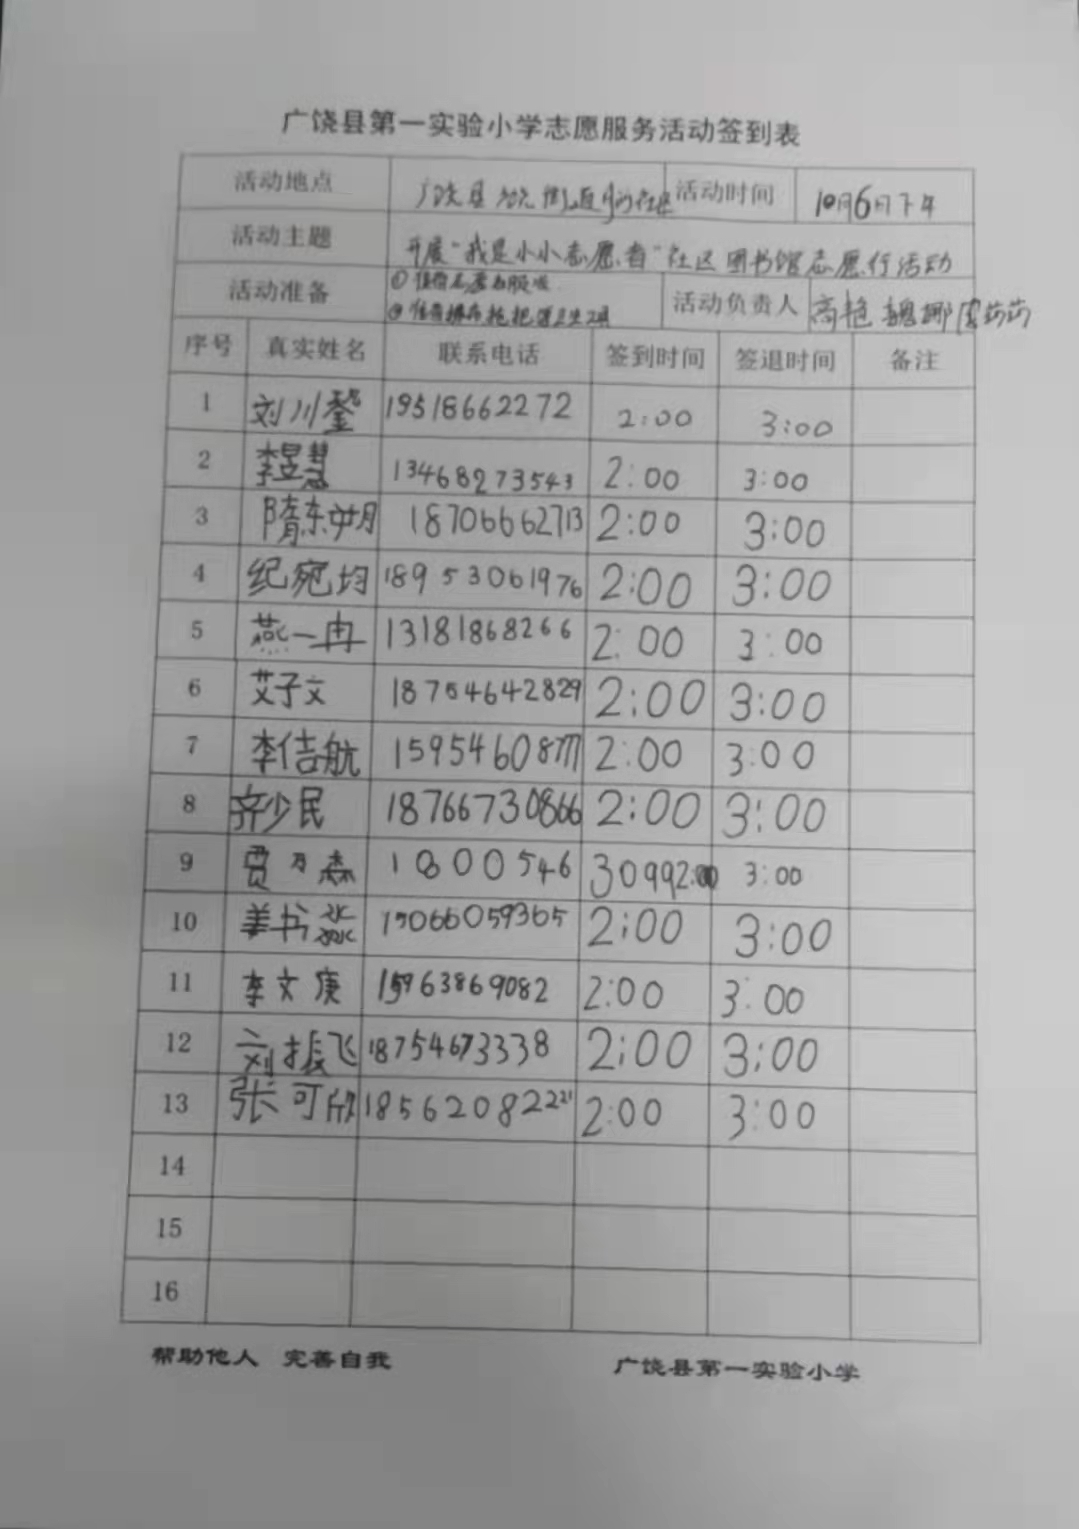 广饶县第一实验小学志愿服务活动签到表
活动地点 广饶县 街道 社区 活动时间 10月6日下午
活动主题 开展“我是小小志愿者”社区图书馆志愿行活动
活动准备 ① ② 活动负责人 高艳 魏娜
序号 真实姓名 联系电话 签到时间 签退时间 备注
1 刘川 19518662272 2:00 3:00
2 李昱慧 13468273543 2:00 3:00
3 隋东 18706662713 2:00 3:00
4 纪宛均 18953061976 2:00 3:00
5 燕一冉 13181868266 2:00 3:00
6 艾子文 18754642829 2:00 3:00
7 李佶航 15954608777 2:00 3:00
8 齐少民 18766730866 2:00 3:00
9 贾乃森 1800546 30992:00 3:00
10 姜书 15066059365 2:00 3:00
11 李文庚 15963869082 2:00 3:00
12 刘振飞 18754673338 2:00 3:00
13 张可欣 2:00 3:00
14
15
16
帮助他人 完善自我 广饶县第一实验小学